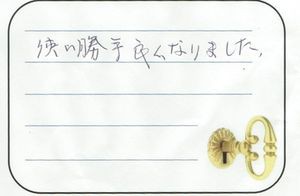 使い勝手良くなりました。